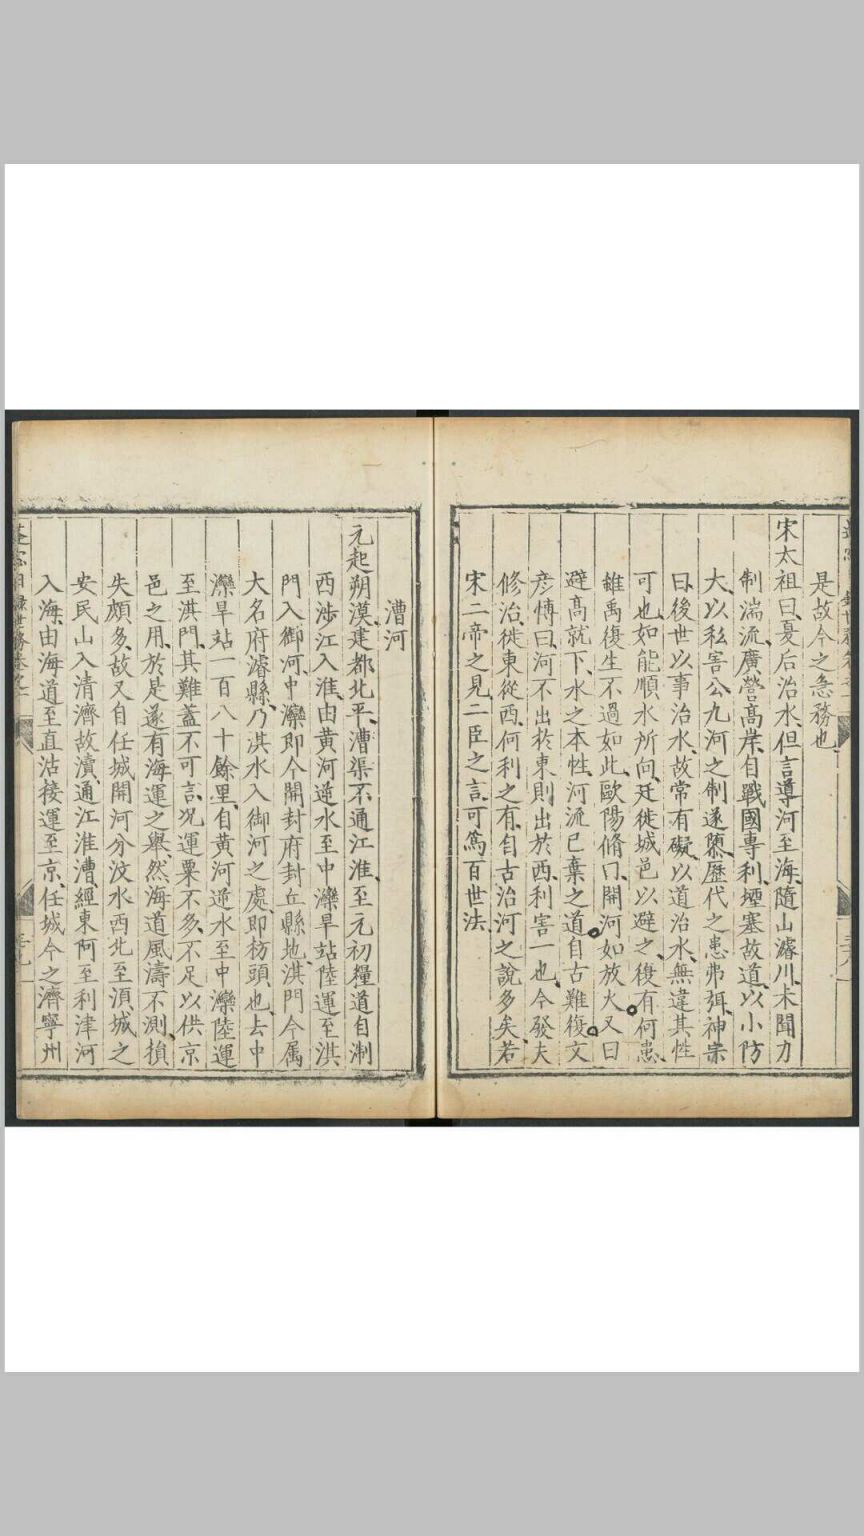 是故今之急務也
宋太祖曰夏后治水但言導河至海隨山濬川未聞力
制湍流廣營高岸自戰國專利堙塞故道以小防
大以私害公九河之制遂隳歷代之患弗弭神宗
曰後世以事治水故常有礙以道治水無違其性
可也如能順水所向迁徙城邑以避之復有何患
雖禹復生不過如此歐陽脩曰開河如放火又曰
避高就下水之本性河流已棄之道自古難復文
彦博曰河不出於東則出於西利害一也今發夫
修治徙東從西何利之有自古治河之說多矣若
宋二帝之見二臣之言可為百世法
漕河
元起朔漠建都北平漕渠不通江淮至元初糧道自浙
西涉江入淮由黄河逆水至中灤旱站陸運至淇
門入御河中灤即今開封府封丘縣地淇門今属
大名府濬縣乃淇水入御河之處即枋頭也去中
灤旱站一百八十餘里自黄河逆水至中灤陸運
至淇門其難蓋不可言况運粟不多不足以供京
邑之用於是遂有海運之舉然海道風濤不測損
失頗多故又自任城開河分汶水西北至湏城之
安民山入清濟故瀆通江淮漕經東阿至利津河
入海由海道至直沽接運至京任城今之濟寧州